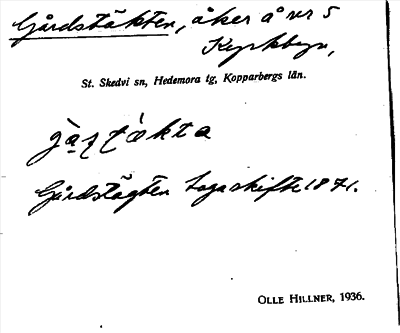 Gårdstäkten, åker å nr 5
Kyrkbyn,
St. Skedvi sn, Hedemora tg, Kopparbergs län.
Gårdstägten Lagaskifte 1871.
OLLE HILLNER, 1936.